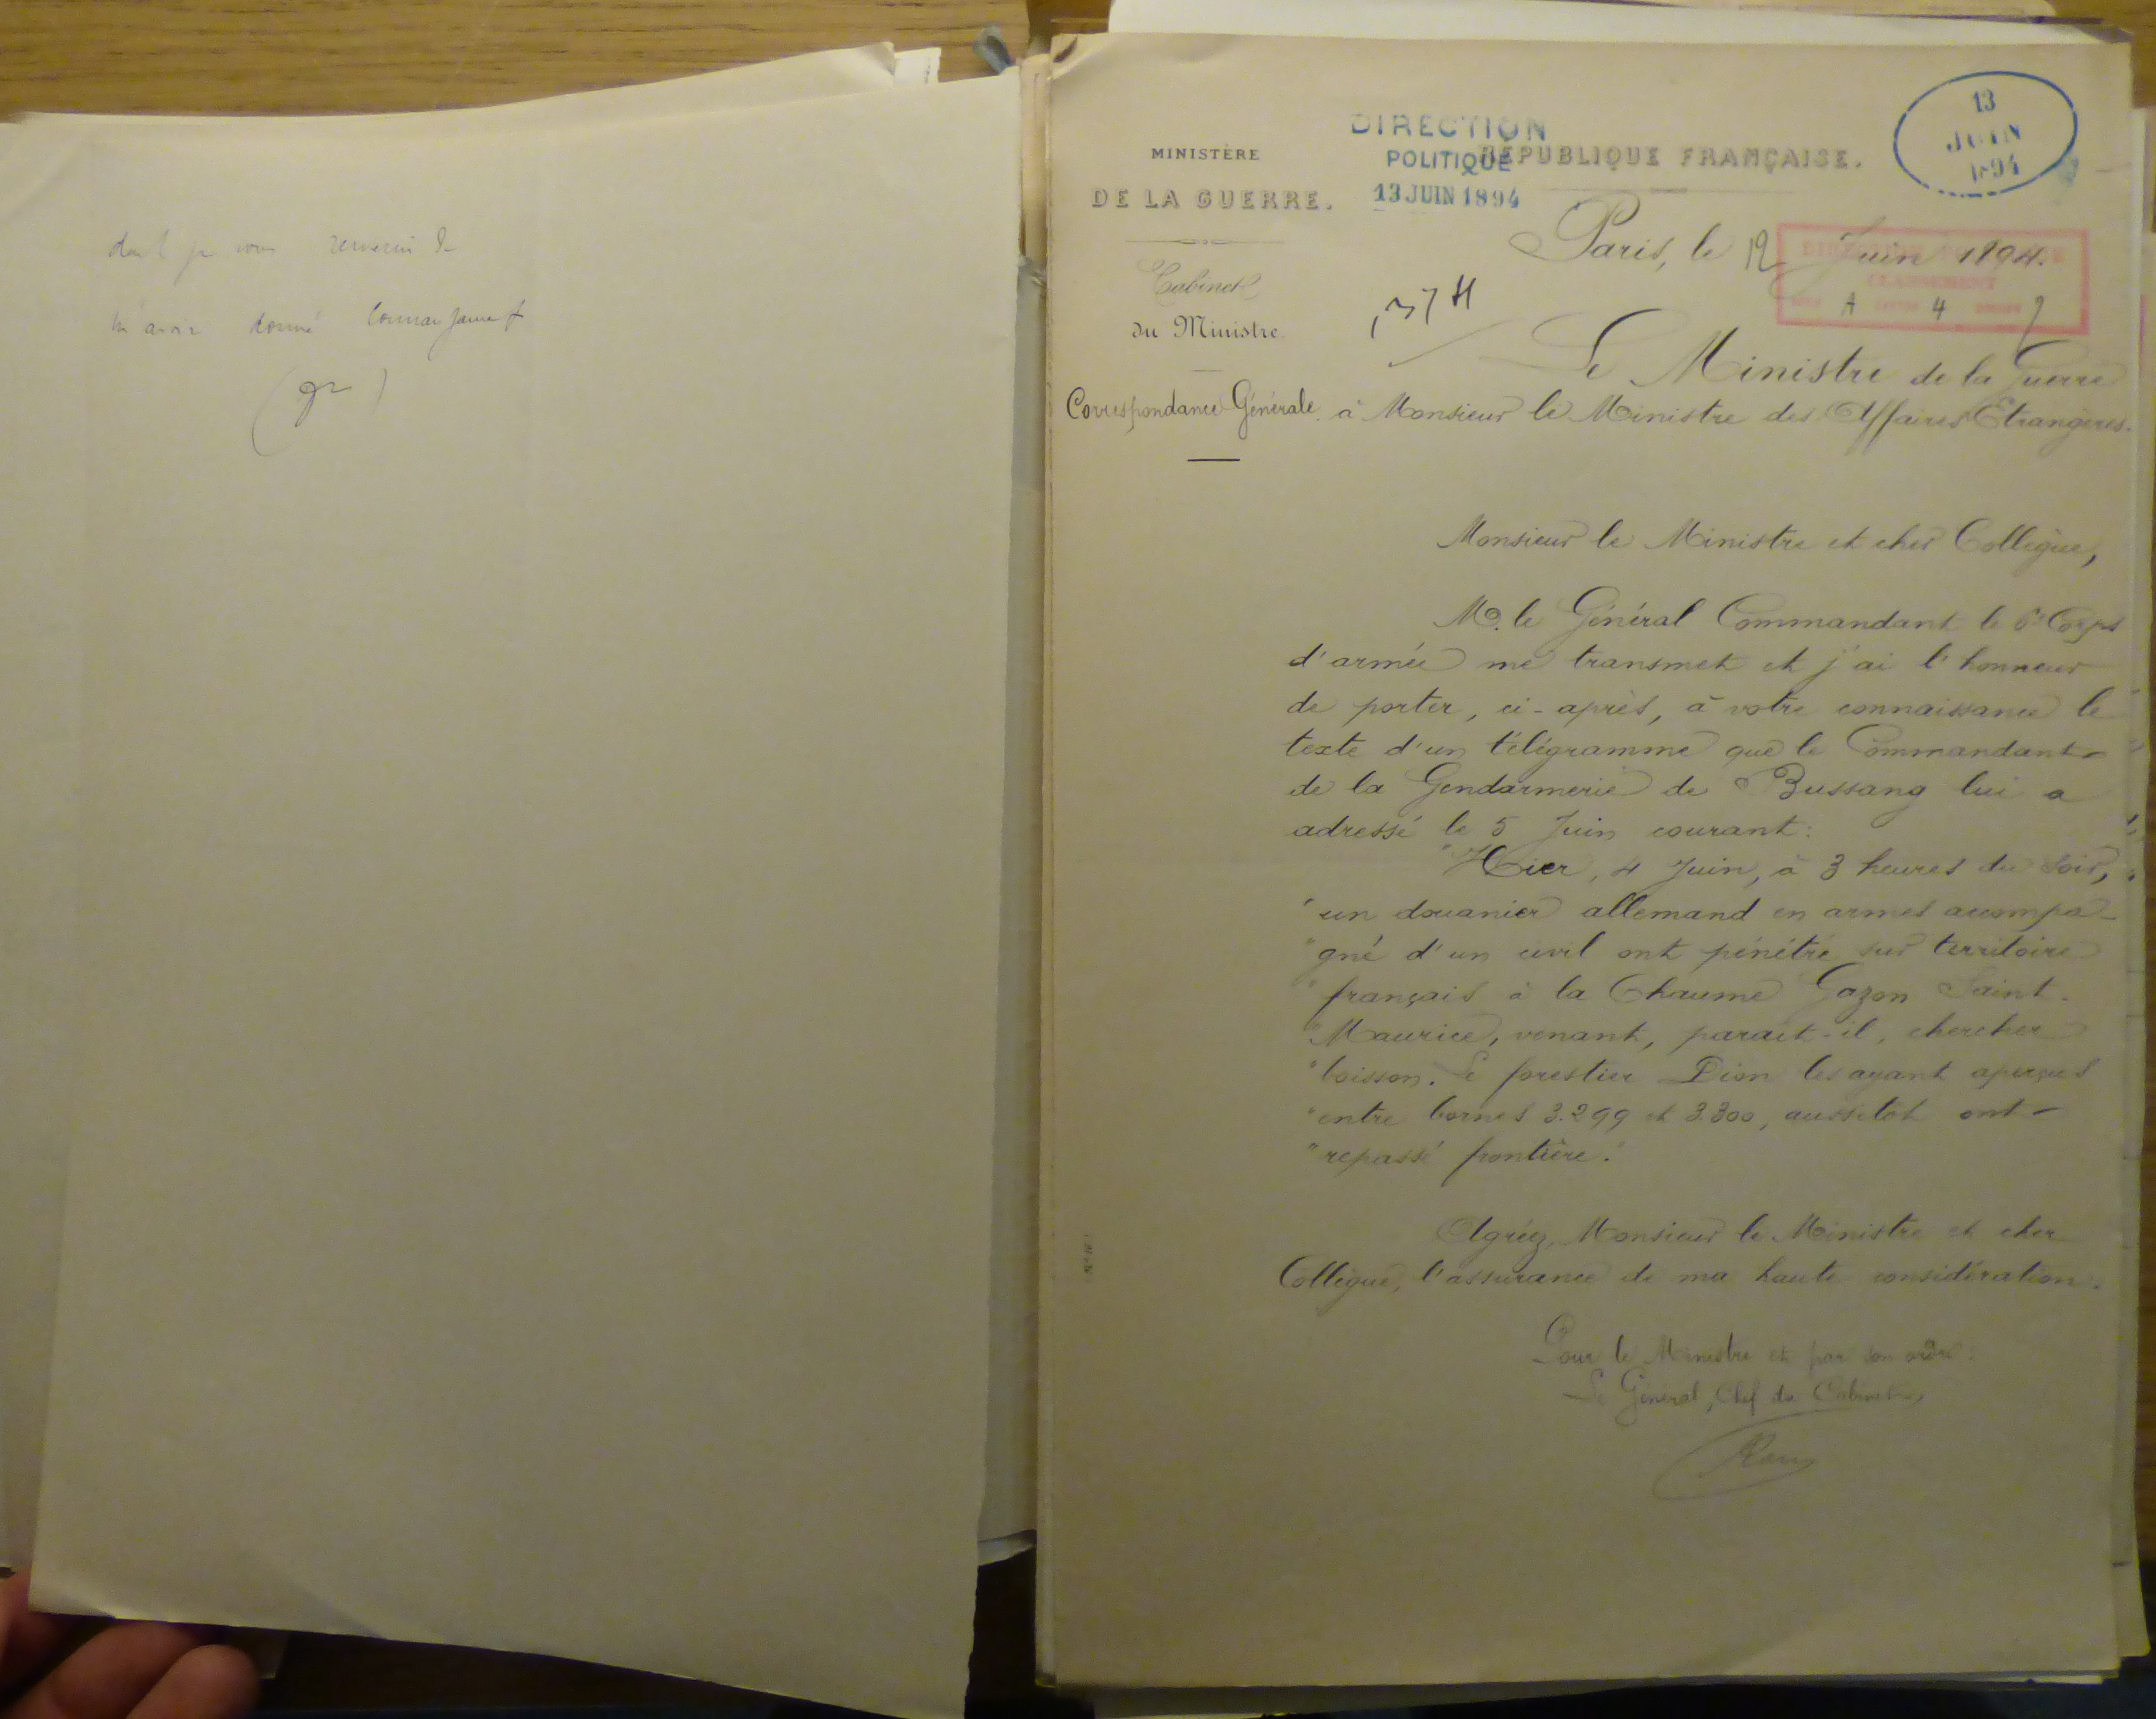 dont je vous remercie de
m'avoir donné connaissance
MINISTÈRE
DE LA GUERRE.
Cabinet
du Ministre.
Correspondance Générale.
DIRECTION
POLITIQUE
13 JUIN 1894
RÉPUBLIQUE FRANÇAISE.
13
JUIN
1894
Paris, le 12 Juin 1894.
DIRECTION POLITIQUE
CLASSEMENT
A 4
Le Ministre de la Guerre
à Monsieur le Ministre des Affaires Etrangères.
Monsieur le Ministre et cher Collègue,
M. le Général Commandant le 6e Corps
d'armée me transmet et j'ai l'honneur
de porter, ci-après, à votre connaissance le
texte d'un télégramme que le Commandant
de la Gendarmerie de Bussang lui a
adressé le 5 Juin courant:
"Hier, 4 Juin, à 3 heures du soir,
"un douanier allemand en armes accompa-
"gné d'un civil ont pénétré sur territoire
"français à la Chaume Gazon Saint-
"Maurice, venant, parait-il, chercher
"boisson. Le forestier Pion les ayant aperçus
"entre bornes 3.299 et 3.300, aussitot ont
"repassé frontière."
Agréez, Monsieur le Ministre et cher
Collègue, l'assurance de ma haute considération.
Pour le Ministre et par son ordre:
Le Général, Chef du Cabinet,